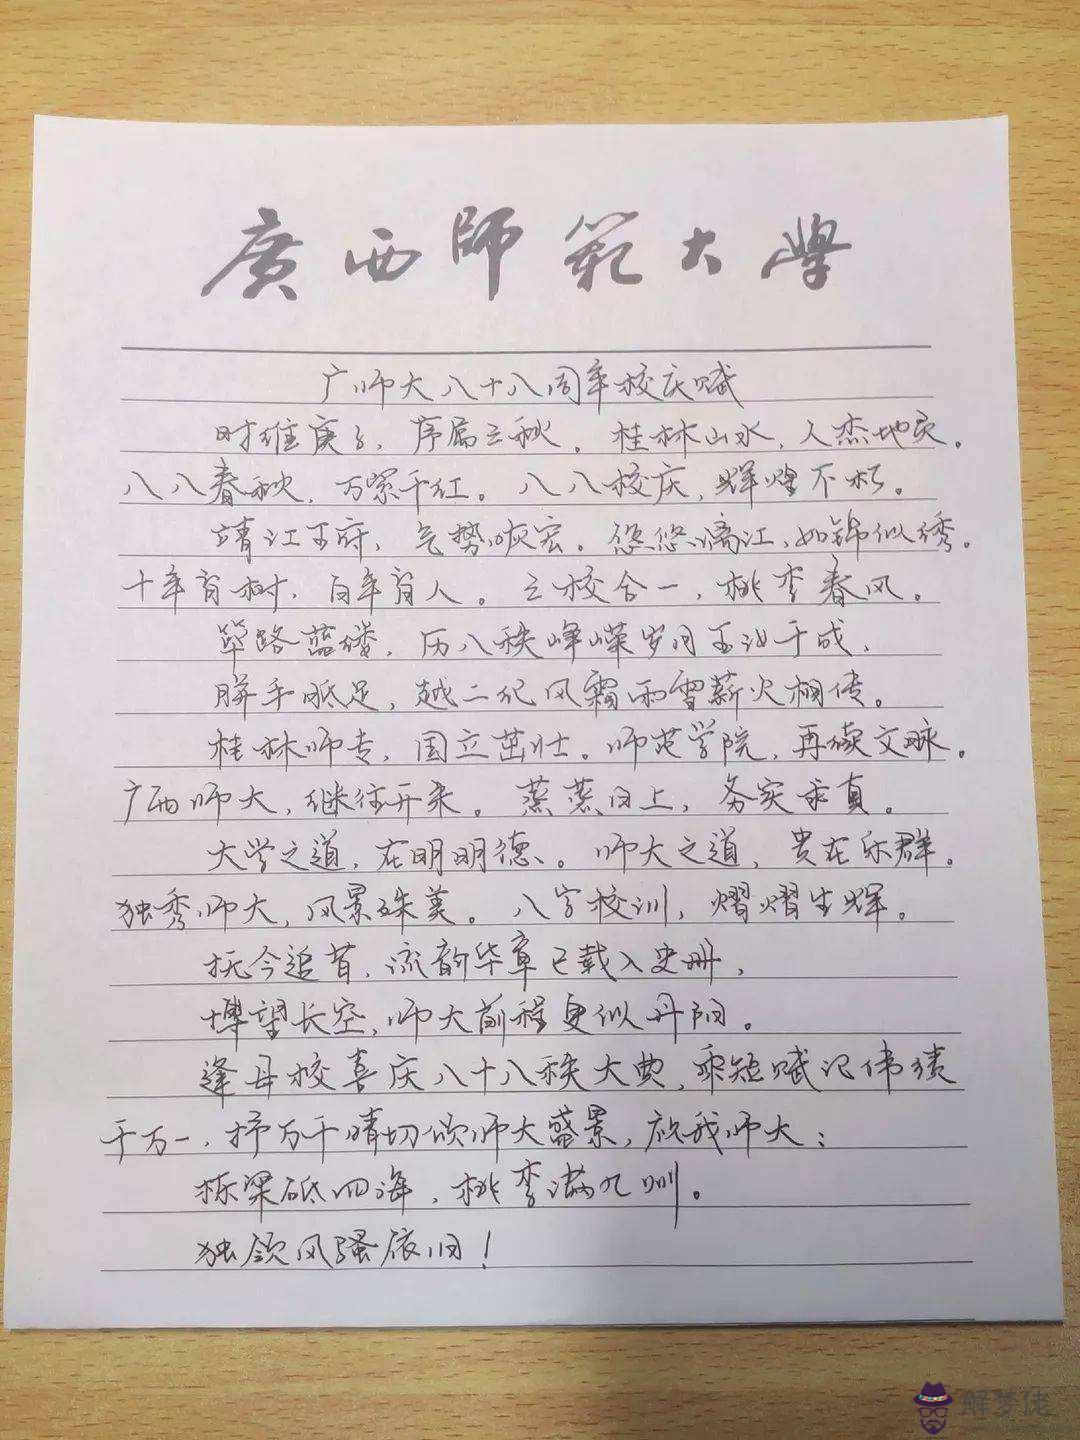 廣西師範大學
广师大八十八周年校庆赋
时维庚子，序属三秋。桂林山水，人杰地灵。
八八春秋，万紫千红。八八校庆，辉煌不朽。
靖江王府，气势恢宏。悠悠漓江，如锦似绣。
十年育树，百年育人。三校合一，桃李春风。
筚路蓝缕，历八秩峥嵘岁月玉汝于成，
胼手胝足，越二纪风霜雨雪薪火相传。
桂林师专，国立茁壮。师范学院，再续文脉。
广西师大，继往开来。蒸蒸日上，务实求真。
大学之道，在明明德。师大之道，贵在乐群。
独秀师大，风景殊美。八字校训，熠熠生辉。
抚今追昔，流韵华章已载入史册，
博望长空，师大前程更似丹阳。
逢母校喜庆八十八秩大典，乘短赋记伟绩
千万一，抒万千情切颂师大盛景，祝我师大：
栋梁砥四海，桃李满九州。
独领风骚依旧！
解梦佬